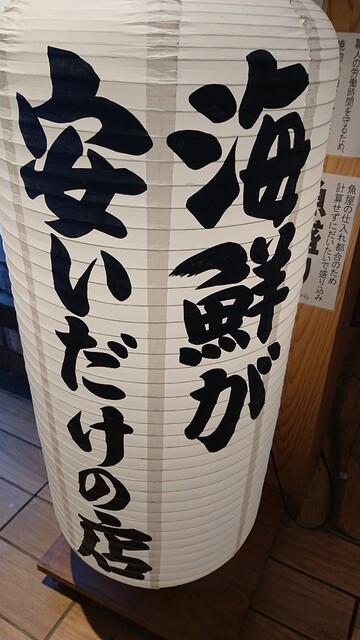 海鮮が
安いだけの店
職人の労働時間を守るため、
魚屋の仕入れ都合のため
計算せずにだいたいで盛り込み